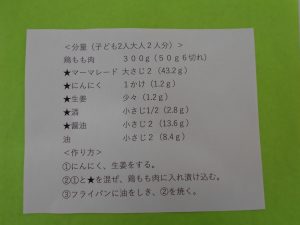 ＜分量（子ども2人大人２人分）＞
鶏もも肉　３００ｇ（５０ｇ６切れ）
★マーマレード　大さじ２（43.2ｇ）
★にんにく　１かけ（1.2ｇ）
★生姜　少々（1.2ｇ）
★酒　小さじ1/2（2.8ｇ）
★醤油　小さじ２（13.6ｇ）
油　小さじ２（8.4ｇ）
＜作り方＞
①にんにく、生姜をする。
②①と★を混ぜ、鶏もも肉に入れ漬け込む。
③フライパンに油をしき、②を焼く。